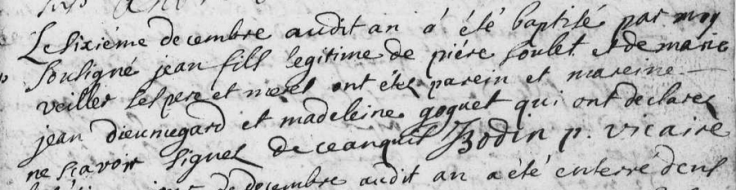 Le sixiéme decembre audit an a été baptisé par moy
sousigné jean fills legitime de piére soulet et de marie
veillet les pere et mere ont étés parein et mareine
jean dieumegard et madeleine goguet qui ont declarez
ne sçavoir signez de ce anquis Bodin p. vicaire
decembre audit an a été enterré dens